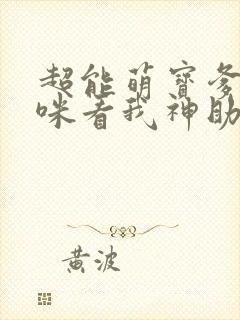 超能萌寶爹
咪看我神助
黃波